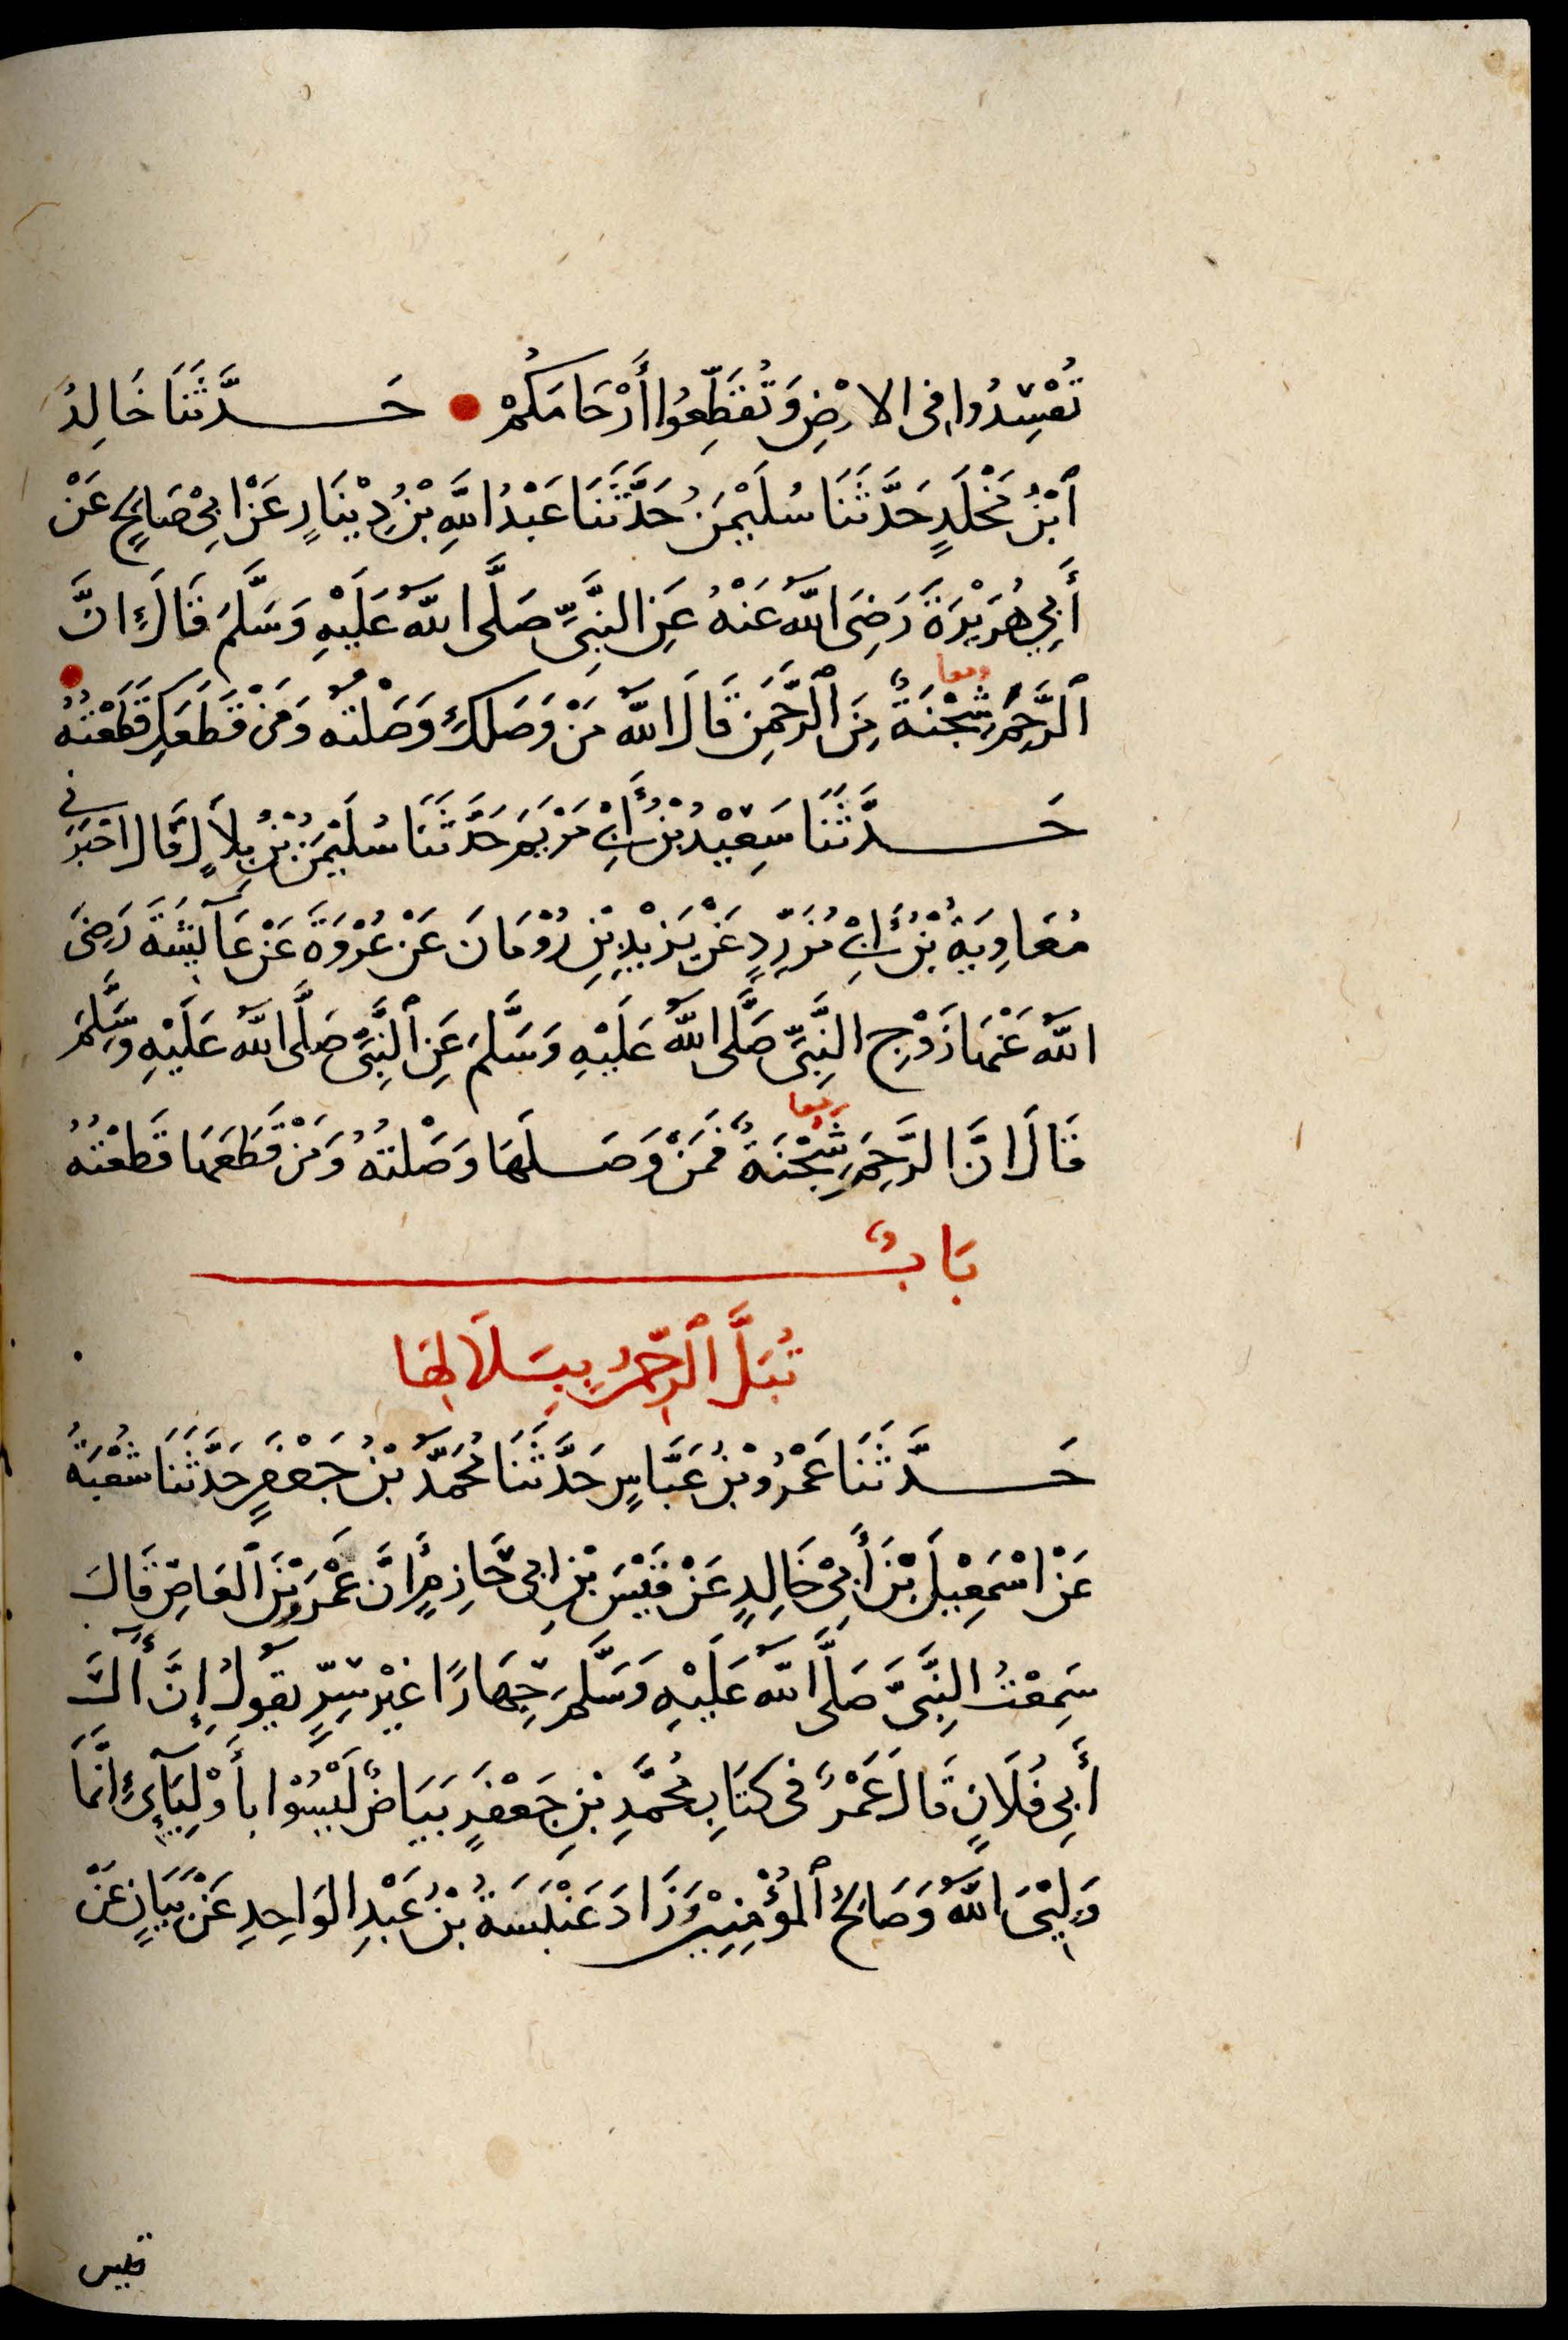 تُفْسِدُوا فِى الارْضِ وَتُقَطِّعُوا أَرْحَامَكُمْ حَــدَّثَنَا خَالِدُ
ٱبْنُ مَخْلَدٍ حَدَّثَنَا سُلَيْمٰنُ حَدَّثَنَا عَبْدُ اللَّهِ بْنُ دِيْنَارٍ عَنْ ابِىْ صَالِحٍ عَنْ
أَبِي هُرَيْرَةَ رَضِىَ اللّٰهُ عَنْهُ عَنِ النَّبِىِّ صَلَّى اللّٰهُ عَلَيْهِ وَسَلَّمَ قَالَ إِنَّ
ٱلرَّحِمَ شِجْنَةٌ مِنَ ٱلرَّحْمٰنِ قَالَ اللّٰهُ مَنْ وَصَلَكِ وَصَلْتُهُ وَمَنْ قَطَعَكِ قَطَعْتُهُ
حَــدَّثَنَا سَعِيْدُ بْنُ أَبِىْ مَرْيَمَ حَدَّثَنَا سُلَيْمٰنُ بْنُ بِلَالٍ قَالَ اخْبَرَنِى
مُعَاوِيَةُ بْنُ أَبِىْ مُزَرِّدٍ عَنْ يَزِيْدِ بْنِ رُوْمَانَ عَنْ عُرْوَةَ عَنْ عَآئِشَةَ رَضِىَ
اللّٰهُ عَنْهَا زَوْجِ النَّبِىِّ صَلَّى اللّٰهُ عَلَيْهِ وَسَلَّمَ عَنِ ٱلنَّبِىِّ صَلَّى اللّٰهُ عَلَيْهِ وَسَلَّمَ
قَالَ انَّ الرَّحِمَ شِجْنَةٌ فَمَنْ وَصَــلَهَا وَصَلْتُهُ وَمَنْ قَطَعَهَا قَطَعْتُهُ
بَابٌ
تُبَلَّ ٱلرَّحِمُ بِبَلَالِهَا
حَــدَّثَنَا عَمْرُو بْنُ عَبَّاسٍ حَدَّثَنَا مُحَمَّدُ بْنُ جَعْفَرٍ حَدَّثَنَا شُعْبَةُ
عَنْ اسْمٰعِيْلَ بْنِ أَبِىْ خَالِدٍ عَنْ قَيْسِ بْنِ ابِى حَازِمٍ أَنَّ عَمْرَو بْنَ ٱلعَاصِ قَالَ
سَمِعْتُ النَّبِىَّ صَلَّى اللّٰهُ عَلَيْهِ وَسَلَّمَ جِهَارًا غَيْرَ سِرٍّ يَقُولُ إِنَّ آلَ
أَبِى فُلَانٍ قَالَ عَمْرٌو فِى كِتَابِ مُحَمَّدِ بْنِ جَعْفَرٍ بَيَاضٌ لَيْسُوْا بِأَوْلِيَآئِىْ إِنَّمَا
وَلِيِّىَ اللّٰهُ وَصَالِحُ ٱلمُؤْمِنِيْنَ وَزَادَ عَنْبَسَةُ بْنُ عَبْدِ الوَاحِدِ عَنْ بَيَانٍ عَنْ
قيس